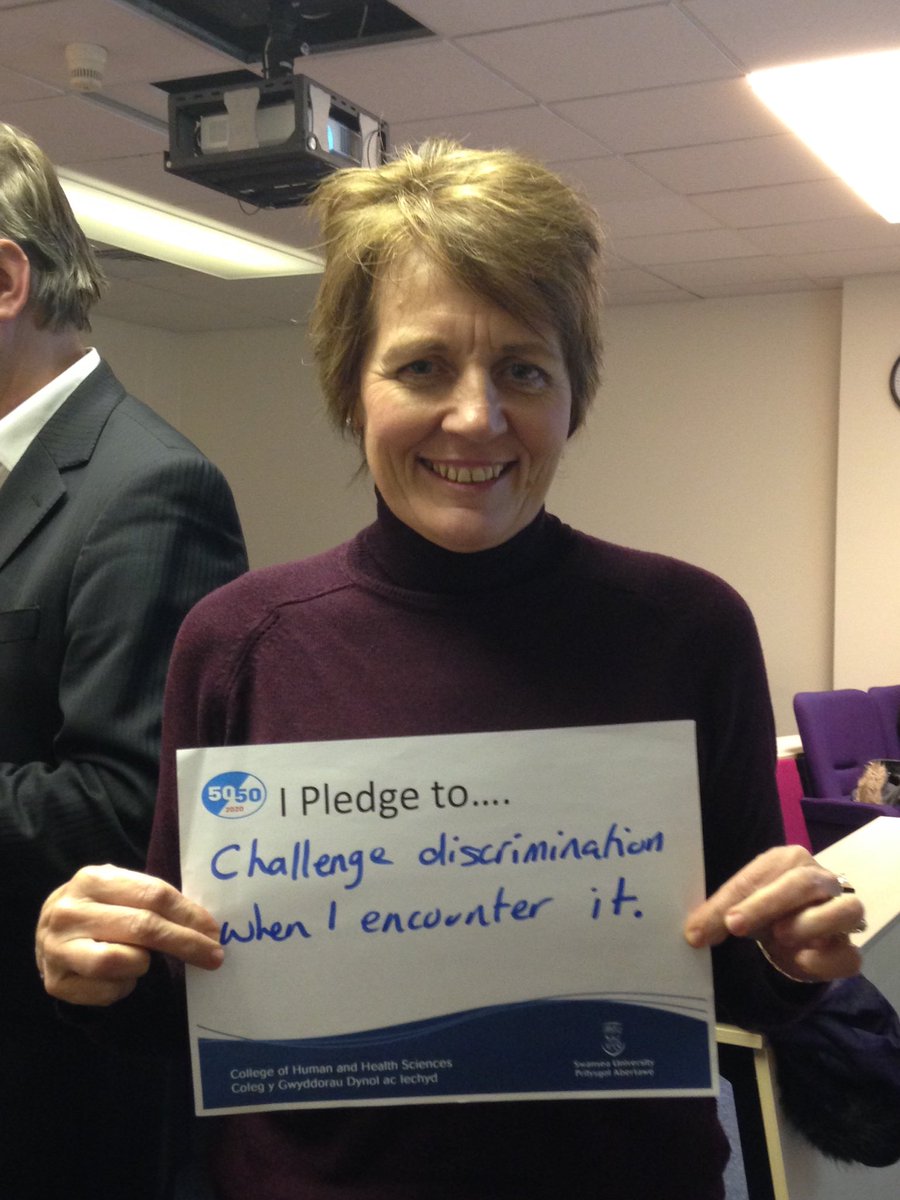 50 50
2020
I Pledge to....
Challenge discrimination
when I encounter it.
College of Human and Health Sciences
Coleg y Gwyddorau Dynol ac Iechyd
Swansea University
Prifysgol Abertawe